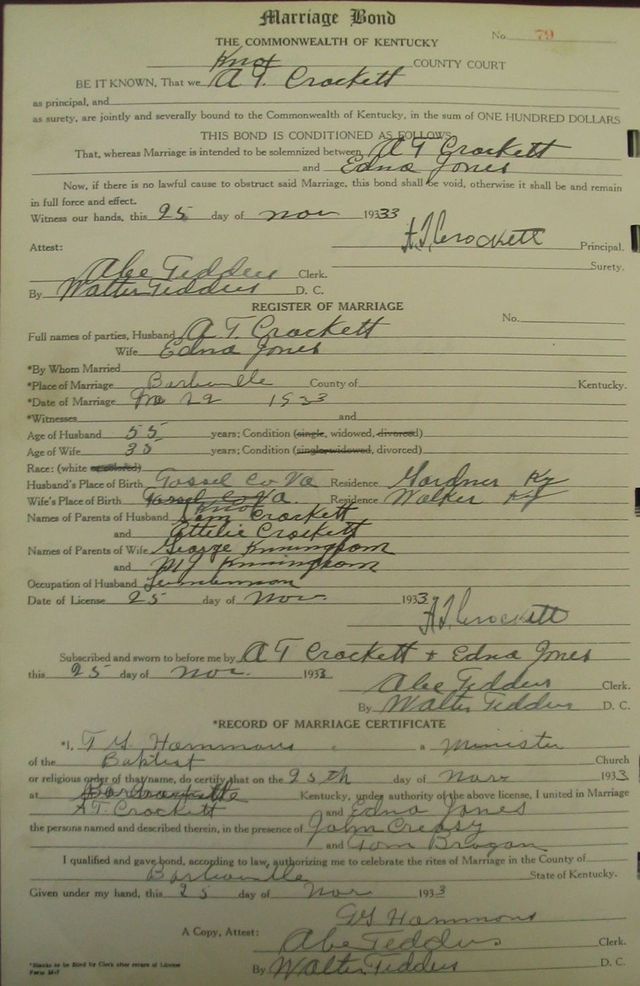 Marriage Bond
No. 79
THE COMMONWEALTH OF KENTUCKY
Knox COUNTY COURT
BE IT KNOWN, That we A T. Crockett
as principal, and
as surety, are jointly and severally bound to the Commonwealth of Kentucky, in the sum of ONE HUNDRED DOLLARS
THIS BOND IS CONDITIONED AS FOLLOWS
That, whereas Marriage is intended to be solemnized between A T Crockett
and Edna Jones
Now, if there is no lawful cause to obstruct said Marriage, this bond shall be void, otherwise it shall be and remain
in full force and effect.
Witness our hands, this 25 day of nov 19333
A.T. Crockett Principal.
Attest:
Surety.
Abe Teddus Clerk.
By Walter Teddus D. C.
REGISTER OF MARRIAGE
No.
Full names of parties, Husband A T. Crockett
Wife Edna Jones
*By Whom Married
*Place of Marriage Barbuville County of Kentucky.
*Date of Marriage 1933
*Witnesses and
Age of Husband 55 years; Condition (single, widowed, divorced)
Age of Wife 38 years; Condition (single, widowed, divorced)
Race: (white or colored)
Husband's Place of Birth Co Va Residence Gardner Ky
Wife's Place of Birth Co Va. Residence Walker Ky
Knox
Names of Parents of Husband Sam Crockett
and Ettilie Crockett
Names of Parents of Wife George
and
Occupation of Husband
Date of License 25 day of Nov. 1933
A.T. Crockett
Subscribed and sworn to before me by A T Crockett + Edna Jones
this 25 day of nov. 1933
Abe Teddus Clerk.
By Walter Teddus D. C.
*RECORD OF MARRIAGE CERTIFICATE
*I, T G Hammons a Minister
of the Baptist Church
or religious order of that name, do certify that on the 25th day of Nov 1933
at Kentucky, under authority of the above license, I united in Marriage
A T. Crockett and Edna Jones
the persons named and described therein, in the presence of John Creasy
and Tom Brogan
I qualified and gave bond, according to law, authorizing me to celebrate the rites of Marriage in the County of
Barbuville State of Kentucky.
Given under my hand, this 25 day of Nov 1933
Hammons
A Copy, Attest: Abe Teddus Clerk.
By Walter Teddus D. C.
*Blanks to be filled by Clerk after return of License
Form M-7